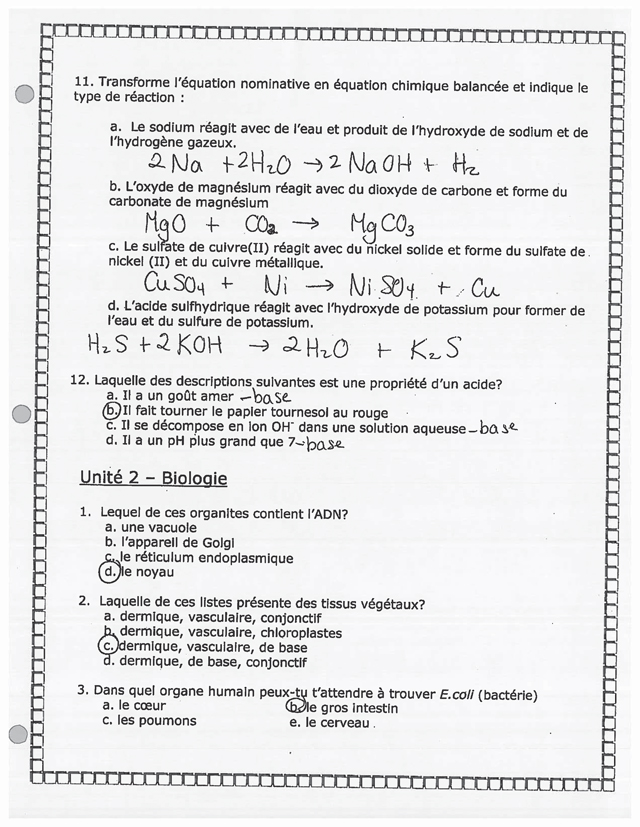 11. Transforme l'équation nominative en équation chimique balancée et indique le
type de réaction :
a. Le sodium réagit avec de l'eau et produit de l'hydroxyde de sodium et de
l'hydrogène gazeux.
2 Na + 2H₂O → 2 NaOH + H₂
b. L'oxyde de magnésium réagit avec du dioxyde de carbone et forme du
carbonate de magnésium
MgO + CO₂ → MgCO₃
c. Le sulfate de cuivre(II) réagit avec du nickel solide et forme du sulfate de
nickel (II) et du cuivre métallique.
CuSO₄ + Ni → NiSO₄ + Cu
d. L'acide sulfhydrique réagit avec l'hydroxyde de potassium pour former de
l'eau et du sulfure de potassium.
H₂S + 2 KOH → 2 H₂O + K₂S
12. Laquelle des descriptions suivantes est une propriété d'un acide?
a. Il a un goût amer – base
b. Il fait tourner le papier tournesol au rouge
c. Il se décompose en ion OH⁻ dans une solution aqueuse – base
d. Il a un pH plus grand que 7 – base
Unité 2 – Biologie
1. Lequel de ces organites contient l'ADN?
a. une vacuole
b. l'appareil de Golgi
c. le réticulum endoplasmique
d. le noyau
2. Laquelle de ces listes présente des tissus végétaux?
a. dermique, vasculaire, conjonctif
b. dermique, vasculaire, chloroplastes
c. dermique, vasculaire, de base
d. dermique, de base, conjonctif
3. Dans quel organe humain peux-tu t'attendre à trouver E.coli (bactérie)
a. le cœur b. le gros intestin
c. les poumons e. le cerveau